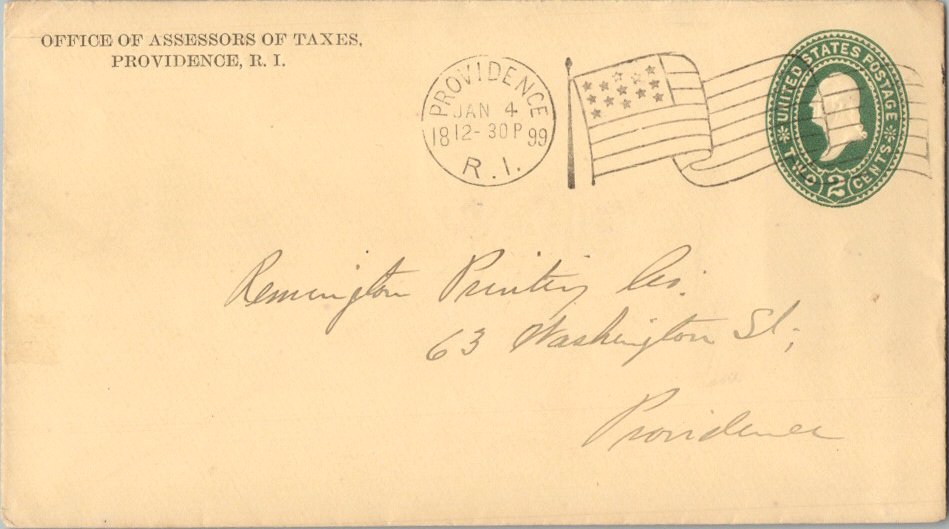 OFFICE OF ASSESSORS OF TAXES,
PROVIDENCE, R. I.
PROVIDENCE
JAN 4
18 12-30P 99
R.I.
UNITED STATES POSTAGE
TWO 2 CENTS
Remington Printing Co.
63 Washington St,
Providence